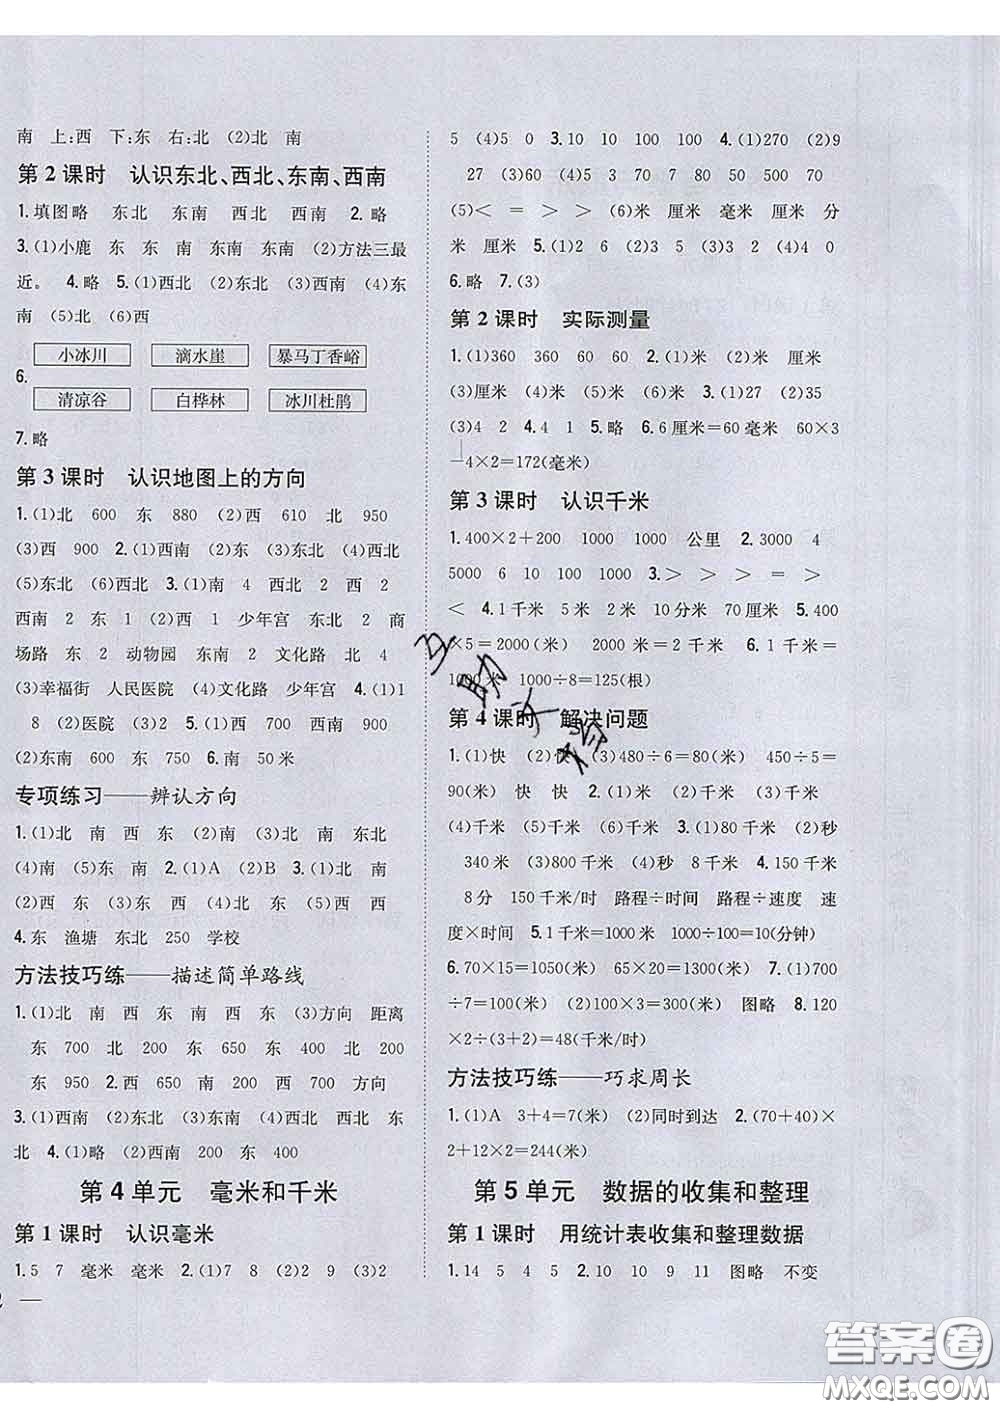 南 上:西 下:东 右:北 (2)北 南
第2课时 认识东北、西北、东南、西南
1.填图略 东北 东南 西北 西南 2.略
3.(1)小鹿 东 东 南 东南 东南 (2)方法三最
近。 4.略 5.(1)西北 (2)东北 (3)西南 (4)东
南 (5)北 (6)西
小冰川 滴水崖 暴马丁香峪
6.
清凉谷 白桦林 冰川杜鹃
7.略
第3课时 认识地图上的方向
1.(1)北 600 东 880 (2)西 610 北 950
(3)西 900 2.(1)西南 (2)东 (3)东北 (4)西北
(5)东北 (6)西北 3.(1)南 4 西北 2 西 2
西南 2 东 1 (2)西 1 少年宫 东北 2 商
场路 东 2 动物园 东南 2 文化路 北 4
(3)幸福街 人民医院 (4)文化路 少年宫 4.(1)1
8 (2)医院 (3)2 5.(1)西 700 西南 900
(2)东北 750 东 750 6.南 50米
专项练习——辨认方向
1.(1)北 南 西 东 (2)南 (3)北 南 东北
(4)南 (5)东 南 2.(1)A (2)B 3.(1)北 北
(2)西 东 (3)东 西 (4)北 东 (5)西 西
4.东 渔塘 东北 250 学校
方法技巧练——描述简单路线
1.(1)北 南 西 东 南 西 东 (3)方向 距离
东 700 北 200 东 650 东 400 北 200
东 950 2.西 650 南 200 西 700 方向
3.(1)西南 (2)东北 (3)东南 (4)西北 西北 东
北 4.(1)略 (2)西南 200 东 400
第4单元 毫米和千米
第1课时 认识毫米
1.5 7 毫米 毫米 2.(1)7 8 (2)2 9 (3)2
5 (4)5 0 3.10 10 100 100 4.(1)270 (2)9
27 (3)6 (4)30 3 70 80 50 500 70
(5)< = > > (6)米 厘米 毫米 厘米 分
米 厘米 5.(1)2 6 (2)3 5 (3)3 2 (4)4 0
6.略 7.(3)
第2课时 实际测量
1.(1)360 360 60 60 2.(1)米 (2)米 厘米
(3)厘米 (4)厘米 (5)米 3.(1)27 (2)35
(3)4 2 4.4 1 5.略 6.6厘米=60毫米 60×3
-4×2=172(毫米)
第3课时 认识千米
1.400×2+200 1000 1000 公里 2.3000 4
5000 6 10 100 1000 3.> > > = >
< 4.1千米 5米 2米 10分米 70厘米 5.400
×5=2000(米) 2000米=2千米 6.1千米=
1000米 1000÷8=125(根)
第4课时 解决问题
1.(1)快 (2)快 (3)480÷6=80(米) 450÷5=
90(米) 快 快 2.(1)米 (2)千米 (3)厘米
(4)千米 (5)千米 (6)千米 3.(1)80千米 (2)秒
340米 (3)800千米 (4)秒 8千米 4.150千米
8分 150千米/时 路程÷时间 路程÷速度 速
度×时间 5.1千米=1000米 1000÷100=10(分钟)
6.70×15=1050(米) 1050米>1千米 7.(1)700
÷7=100(米) (2)100×3=300(米) 图略 8.120
×2÷(3+2)=48(千米/时)
方法技巧练——巧求周长
1.(1)A 3+4=7(米) (2)同时到达 2.(70+40)×
2+12×2=244(米)
第5单元 数据的收集和整理
第1课时 用统计表收集和整理数据
1.14 5 4 5 2.10 10 9 11 图略 不变
互助文档
答案圈
MXQE.COM